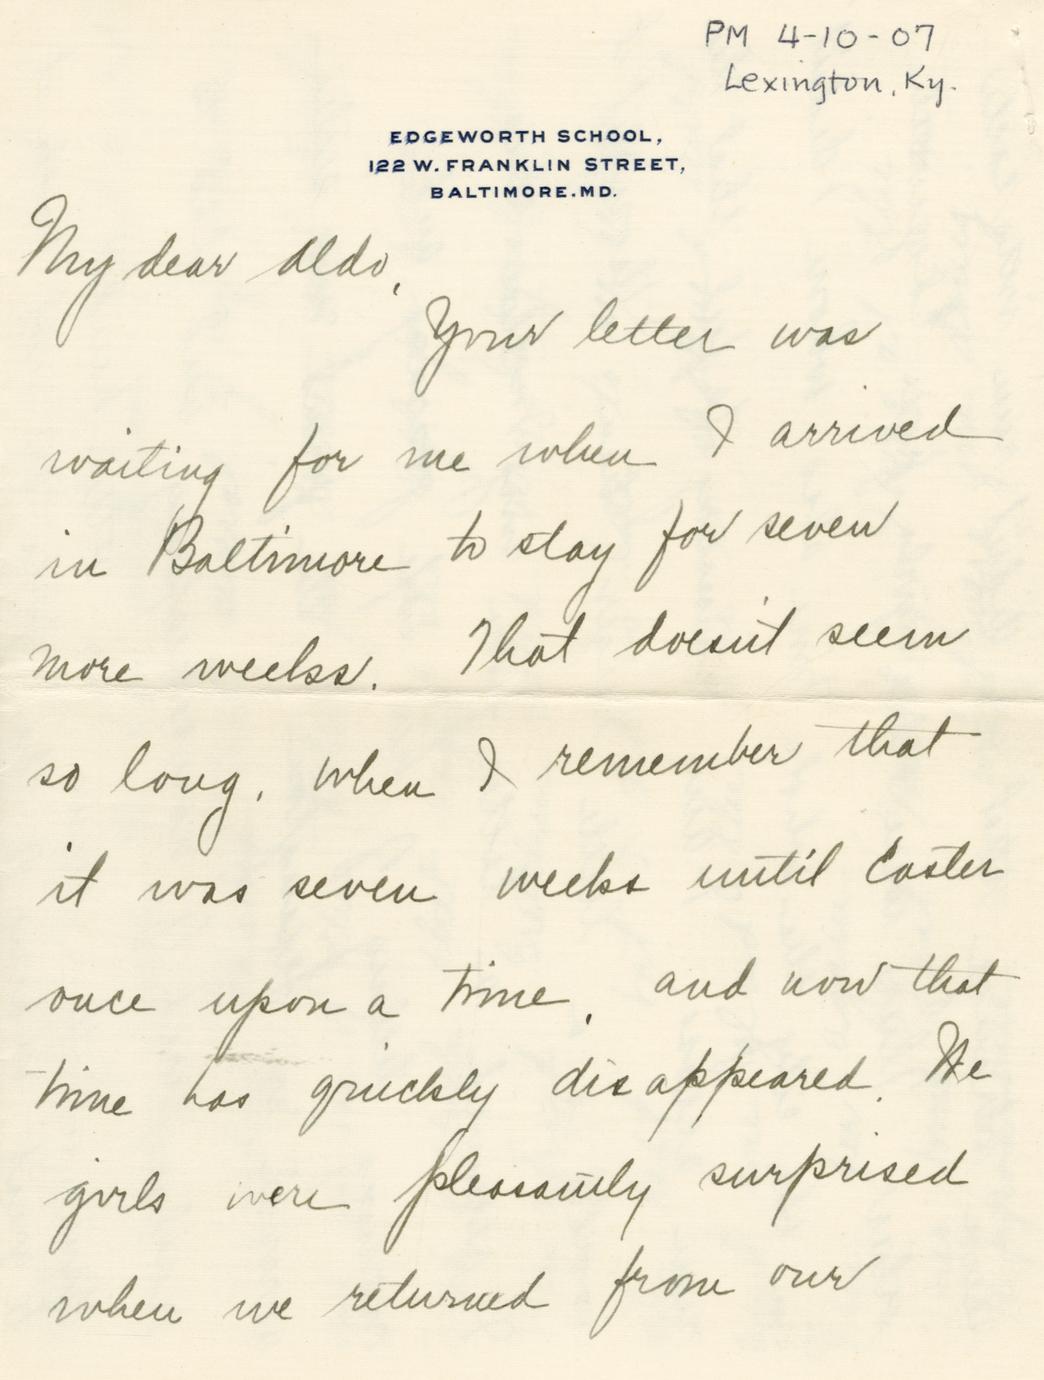 PM 4-10-07
Lexington, Ky.
EDGEWORTH SCHOOL,
122 W. FRANKLIN STREET,
BALTIMORE. MD.
My dear Aldo,
Your letter was
waiting for me when I arrived
in Baltimore to stay for seven
more weeks. That doesn't seem
so long, when I remember that
it was seven weeks until Easter
once upon a time, and now that
time has quickly disappeared. We
girls were pleasantly surprised
when we returned from our